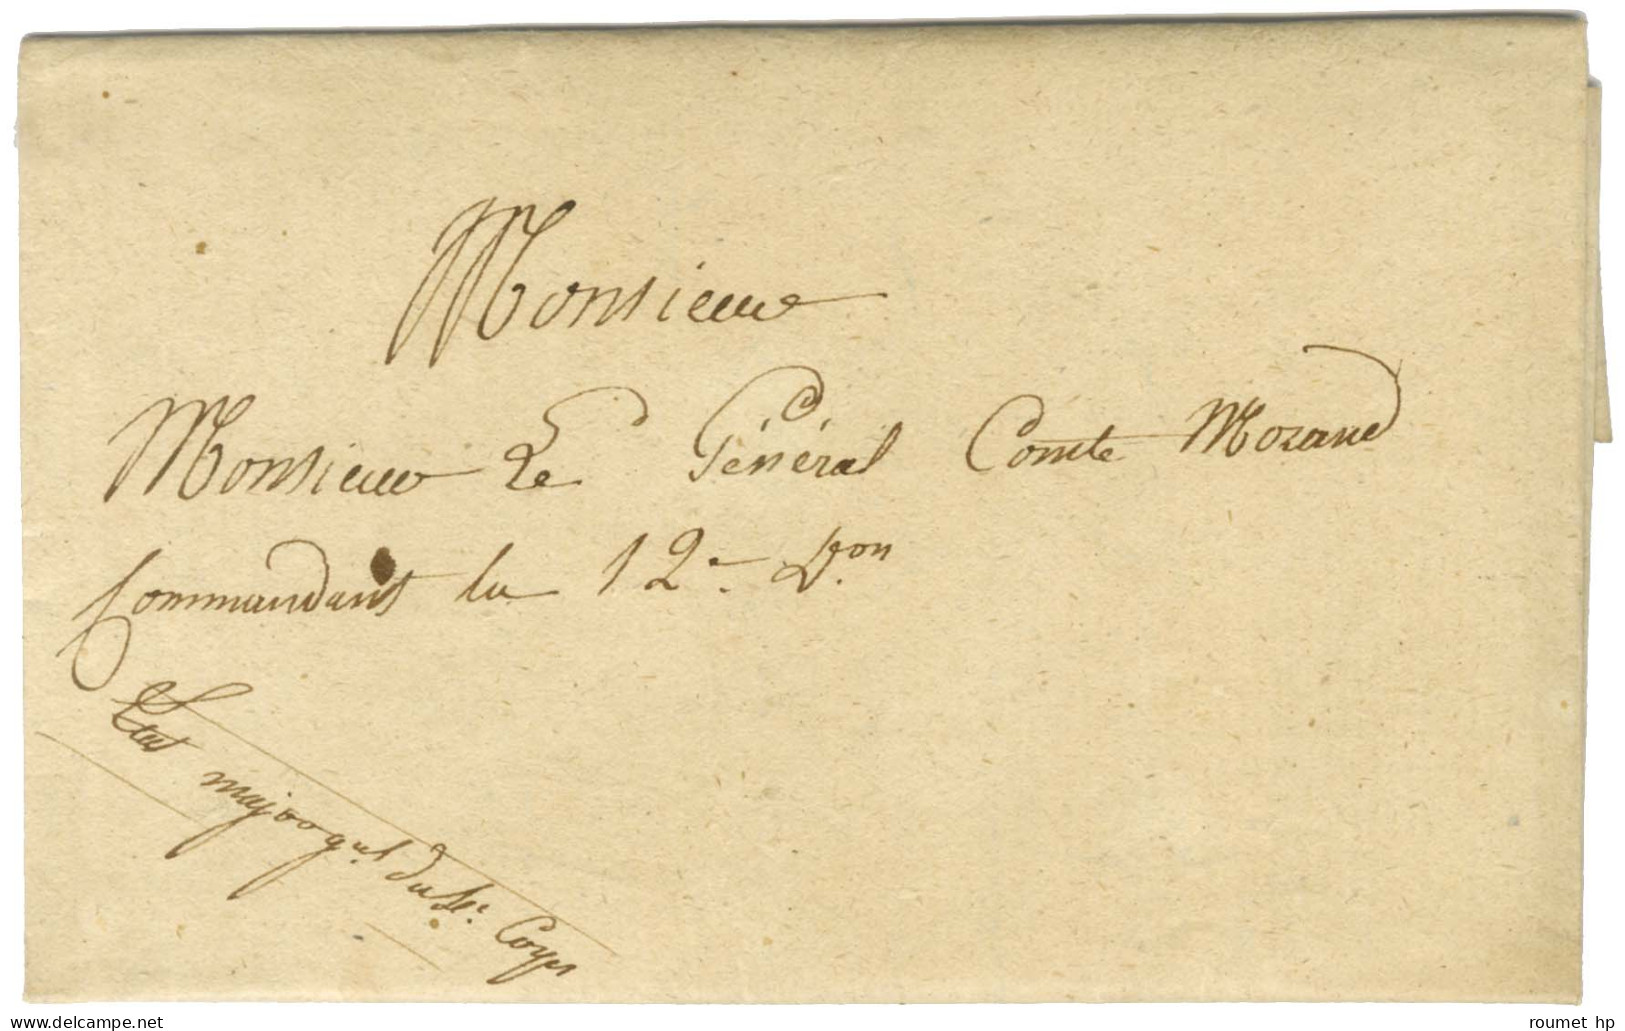 Monsieur
Monsieur Le Général Comte Morand
Commandant la 12e. Don
Etat major gal du 4e. Corps
delcampe.net
roumet_hp